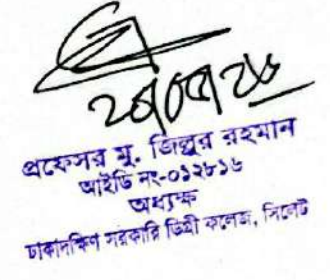 প্রফেসর মু. জিল্লুর রহমান
আইডি নং-০১২৮১৬
অধ্যক্ষ
ঢাকাদক্ষিণ সরকারি ডিগ্রী কলেজ, সিলেট